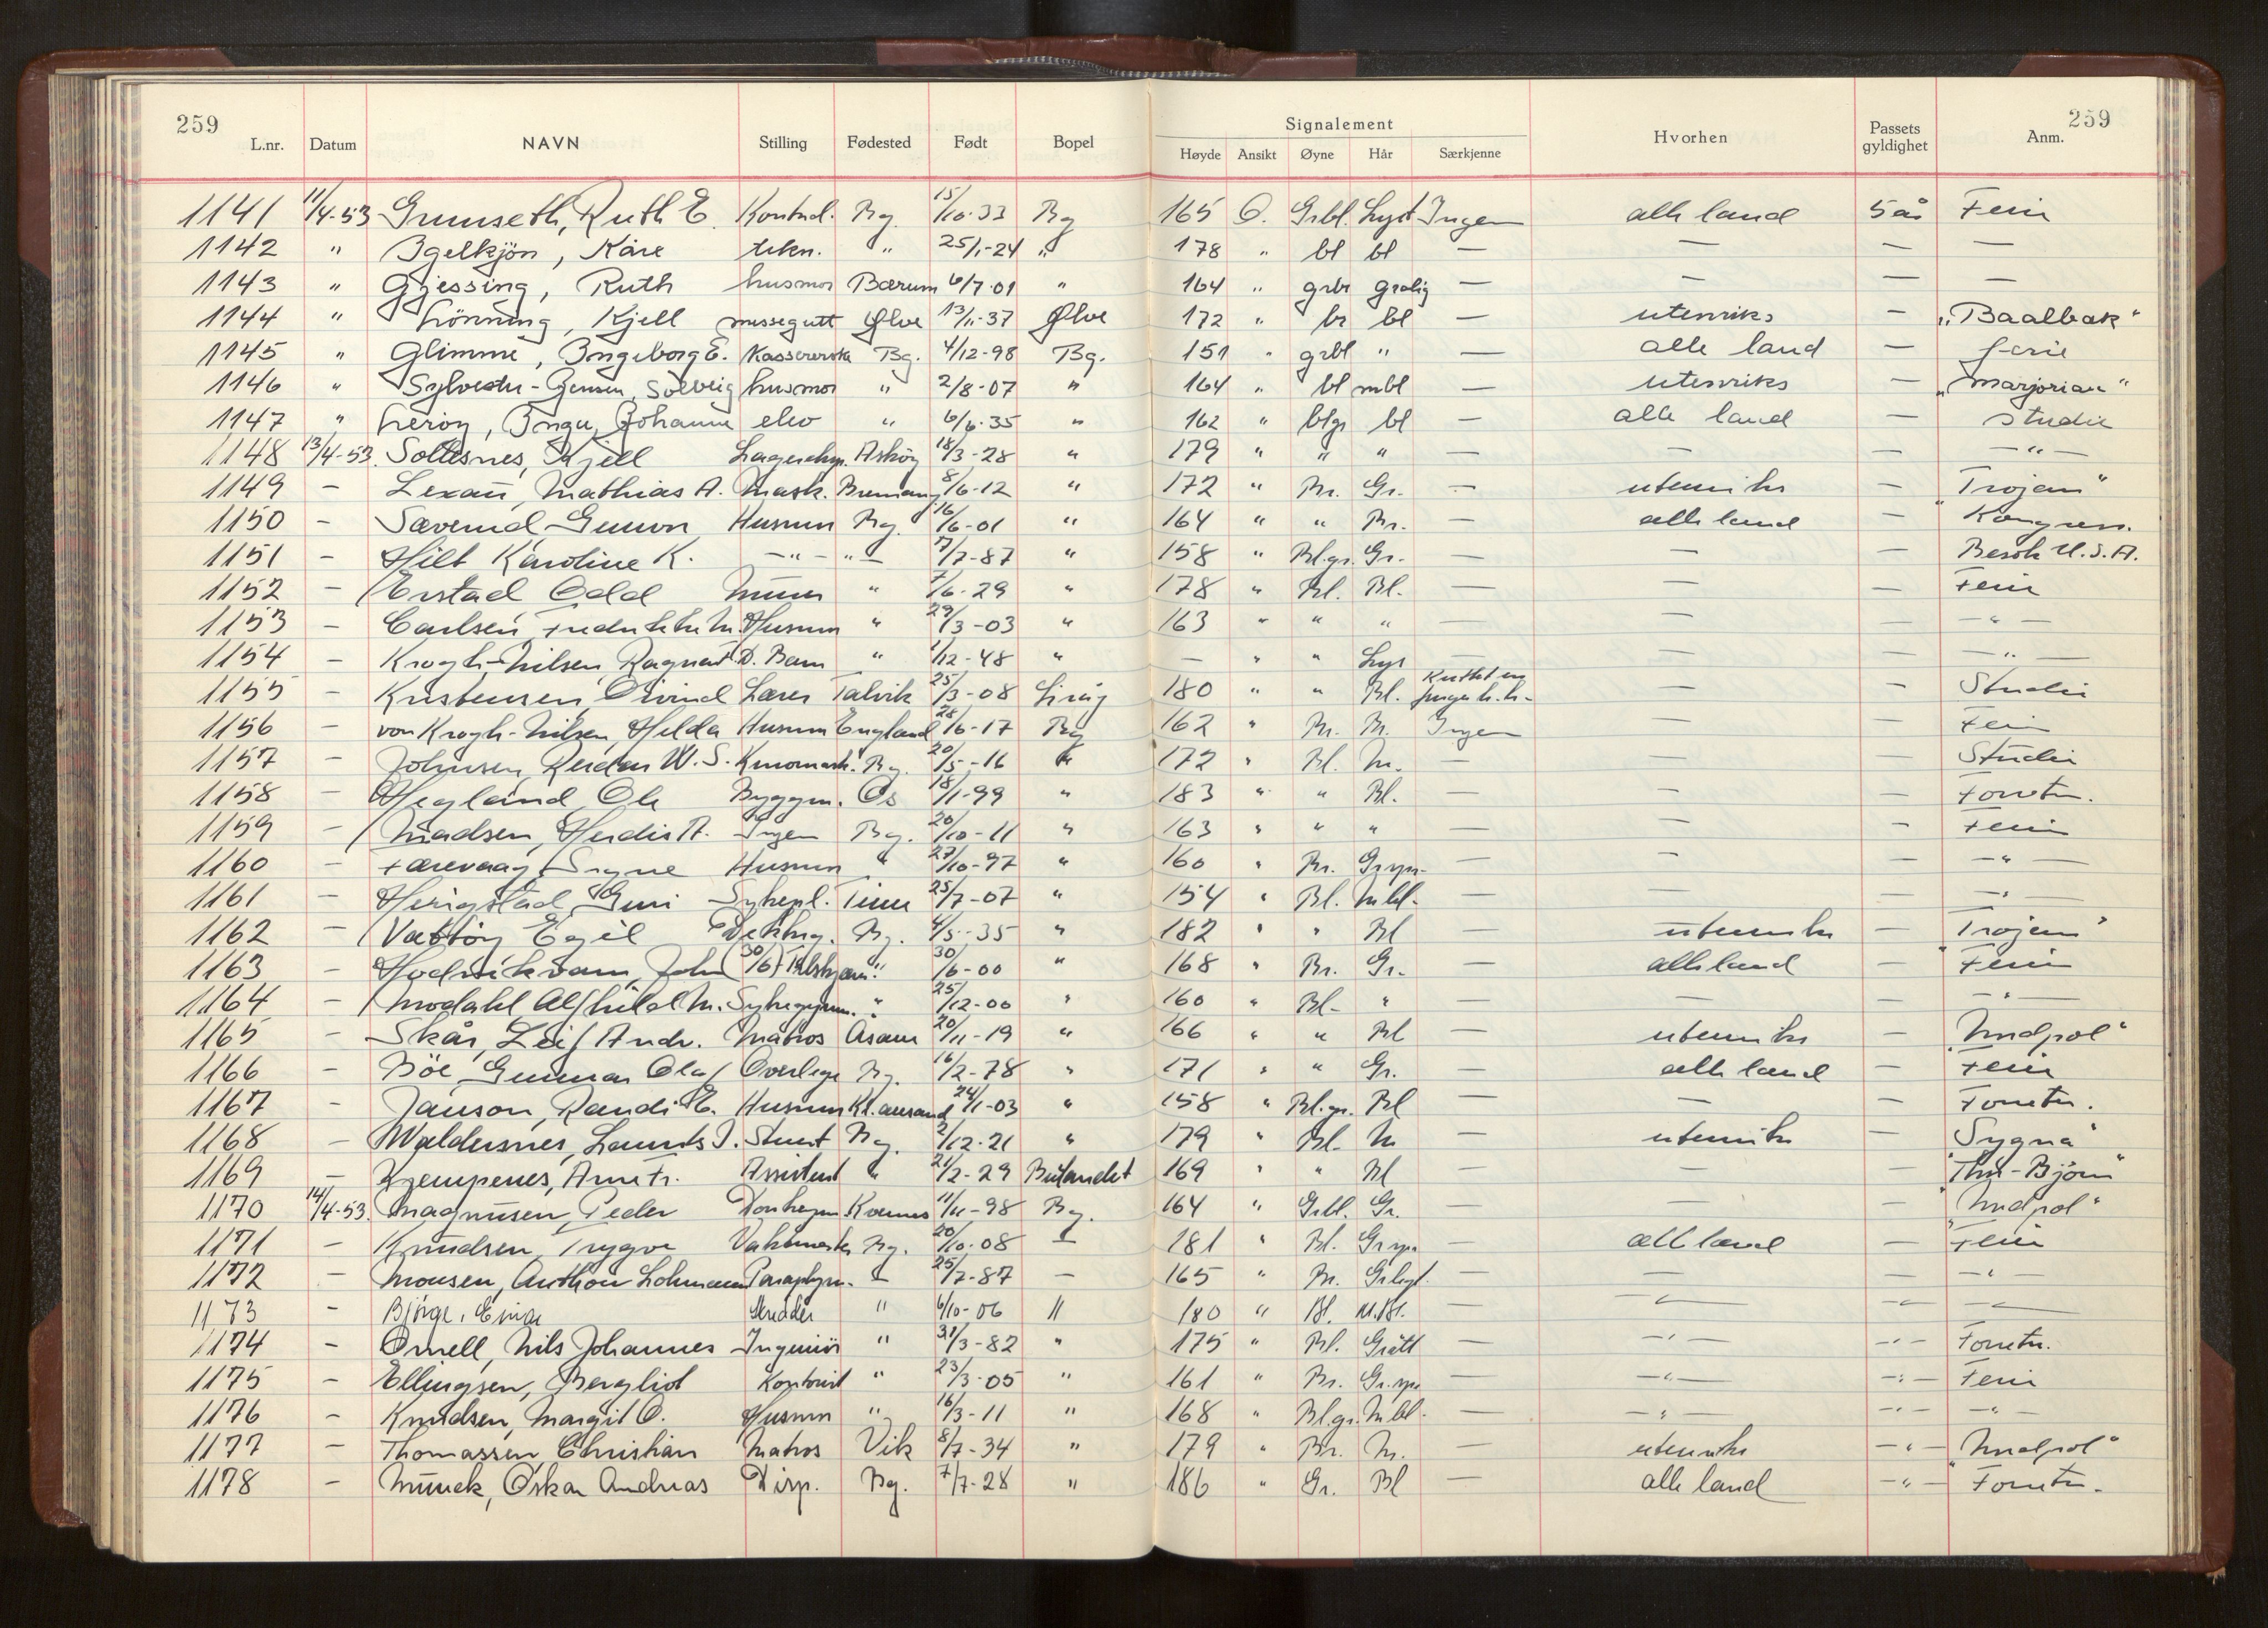 259
259
Signalement
L.nr. Datum NAVN Stilling Fødested Født Bopel Høyde Ansikt Øyne Hår Særkjenne Hvorhen Passets gyldighet Anm.
1141 11/4-53 Grimseth, Ruth E. Kontord. Bg. 15/10-33 Bg 165 O. Grbl. Lyst Ingen alle land 5 år Ferie
1142 " Igelkjön, Kåre tekn. " 25/1-24 " 178 " bl bl — — — —
1143 " Gjessing, Ruth husmor Bærum 6/7-01 " 164 " grbr grålig — — — —
1144 " Lönning, Kjell messegutt Ølve 13/11-37 Ølve 172 " br bl — utenriks — "Baalbak"
1145 " Glimme, Ingeborg E. Kassererske Bg. 4/12-98 Bg. 151 " grbl " — alle land — ferie
1146 " Sylvester-Jensen, Solveig husmor " 2/8-07 " 164 " bl mbl — utenriks — "Marjorian"
1147 " Leröy, Inger Johanne elev " 6/6-35 " 162 " blgr bl — alle land — Studie
1148 13/4-53. Soltesnes, Kjell Lagereksp. Asköy 18/3-28 " 179 " " " — — — — " —
1149 — Lexau, Mathias A. Mask. Bremang 8/6-12 " 172 " Br. Gr. — utenriks — "Trojan"
1150 — Sæverud Gunvor Husmor Bg. 16/6-01 " 164 " " Br. — alle land — Kongress.
1151 — Hilt Karoline K. — " — " — 7/7-87 " 158 " Bl.gr. Gr. — — — Besök U.S.A.
1152 — Erstad Odd Murer " 7/6-29 " 178 " Bl. Bl. — — — Ferie
1153 — Carlsen Fredrikke M. Husmor " 29/3-03 " 163 " " " — — — — " —
1154 — Krogh-Nilsen, Ragnat D. Barn " 1/12-48 " — " " Lys — — — — " —
1155 — Kristensen, Öivind Lærer Talvik 25/3-08 180 " " Bl. finger h.h. — — Studie
1156 — von Krogh-Nilsen, Hilda Husmor England 28/6-17 Bg 162 " Br. Br. Ingen — — Ferie
1157 — Johnsen, Reidar W. S. Kinomask. Bg. 20/5-16 " 172 " Bl. M. — — — Studie
1158 — Hegland, Ole Byggm. Os 18/1-99 " 183 " " Bl. — — — Forretn.
1159 — Madsen, Herdis A. Ingen Bg. 20/10-11 " 163 " " " — — — Ferie
1160 — Færevaag, Signe Husmor " 27/10-97 " 160 " Br. Grspr. — — — — " —
1161 — Herigstad, Guri Sykepl. Time 25/7-07 " 154 " Bl. M.bl. — — — — " —
1162 — Vatöy Egil Dekksg. Bg. 4/5-35 " 182 " " Bl — utenriks — "Trojan"
1163 — John (30/6) " 30/6-00 " 168 " Br. Gr. — alle land — Ferie
1164 — Modahl, Alfhild M. Sykegym. " 25/12-00 " 160 " Bl. " — — — — " —
1165 — Skår, Leif Andr. Matros Asane 20/11-19 " 166 " " Bl — utenriks — "Nndpol"
1166 — Böe, Gunnar Olaf Overlege Bg. 16/2-78 " 171 " " Gr. — alle land — Ferie
1167 — Janson, Randi E. Husmor Kr.ansand 24/1-03 " 158 " Bl.gr. Bl — — — Forretn.
1168 — Waldersnes, Laurits J. Stuert Bg. 2/12-21 " 179 " Bl. M — utenriks — "Sygna"
1169 — Kjempenes, Arne Fr. Assistent " 21/2-29 Bulandet 169 " " Bl — — — "Thor-Björn"
1170 14/4-53. Magnusen, Peder Donkeym. Kvernes 11/11-98 Bg. 164 " Grbl. Gr. — — — "Nndpol"
1171 — Knudsen, Trygve Vaktmester Bg. 20/10-08 — 181 " Bl. Grspr. — alle land — Ferie
1172 — Monsen, Anthon Lohmann Paraplym. — 25/7-87 — 165 " Br. Gr.lyst. — — — — " —
1173 — Björge, Einar Skredder " 6/10-06 " 180 " Bl. M.bl. — — " — — " — — " —
1174 — Ornell, Nils Johannes Ingeniör " 31/3-82 " 175 " Bl. Grått — — " — — " — Forretn.
1175 — Ellingsen, Bergliot Kontorist " 23/3-05 " 161 " Br. Gr.spr. — — " — — " — Ferie
1176 — Knudsen, Margit O. Husmor " 16/3-11 " 168 " Bl.gr. M.bl. — — " — — " — — " —
1177 — Thomassen, Christian Matros Vik 8/7-34 " 179 " Br. M. — utenriks — " — "Nndpol"
1178 — Munck, Oskar Andreas Disp. Bg. 7/7-28 " 186 " Gr. Bl — alle land — " — Forretn.